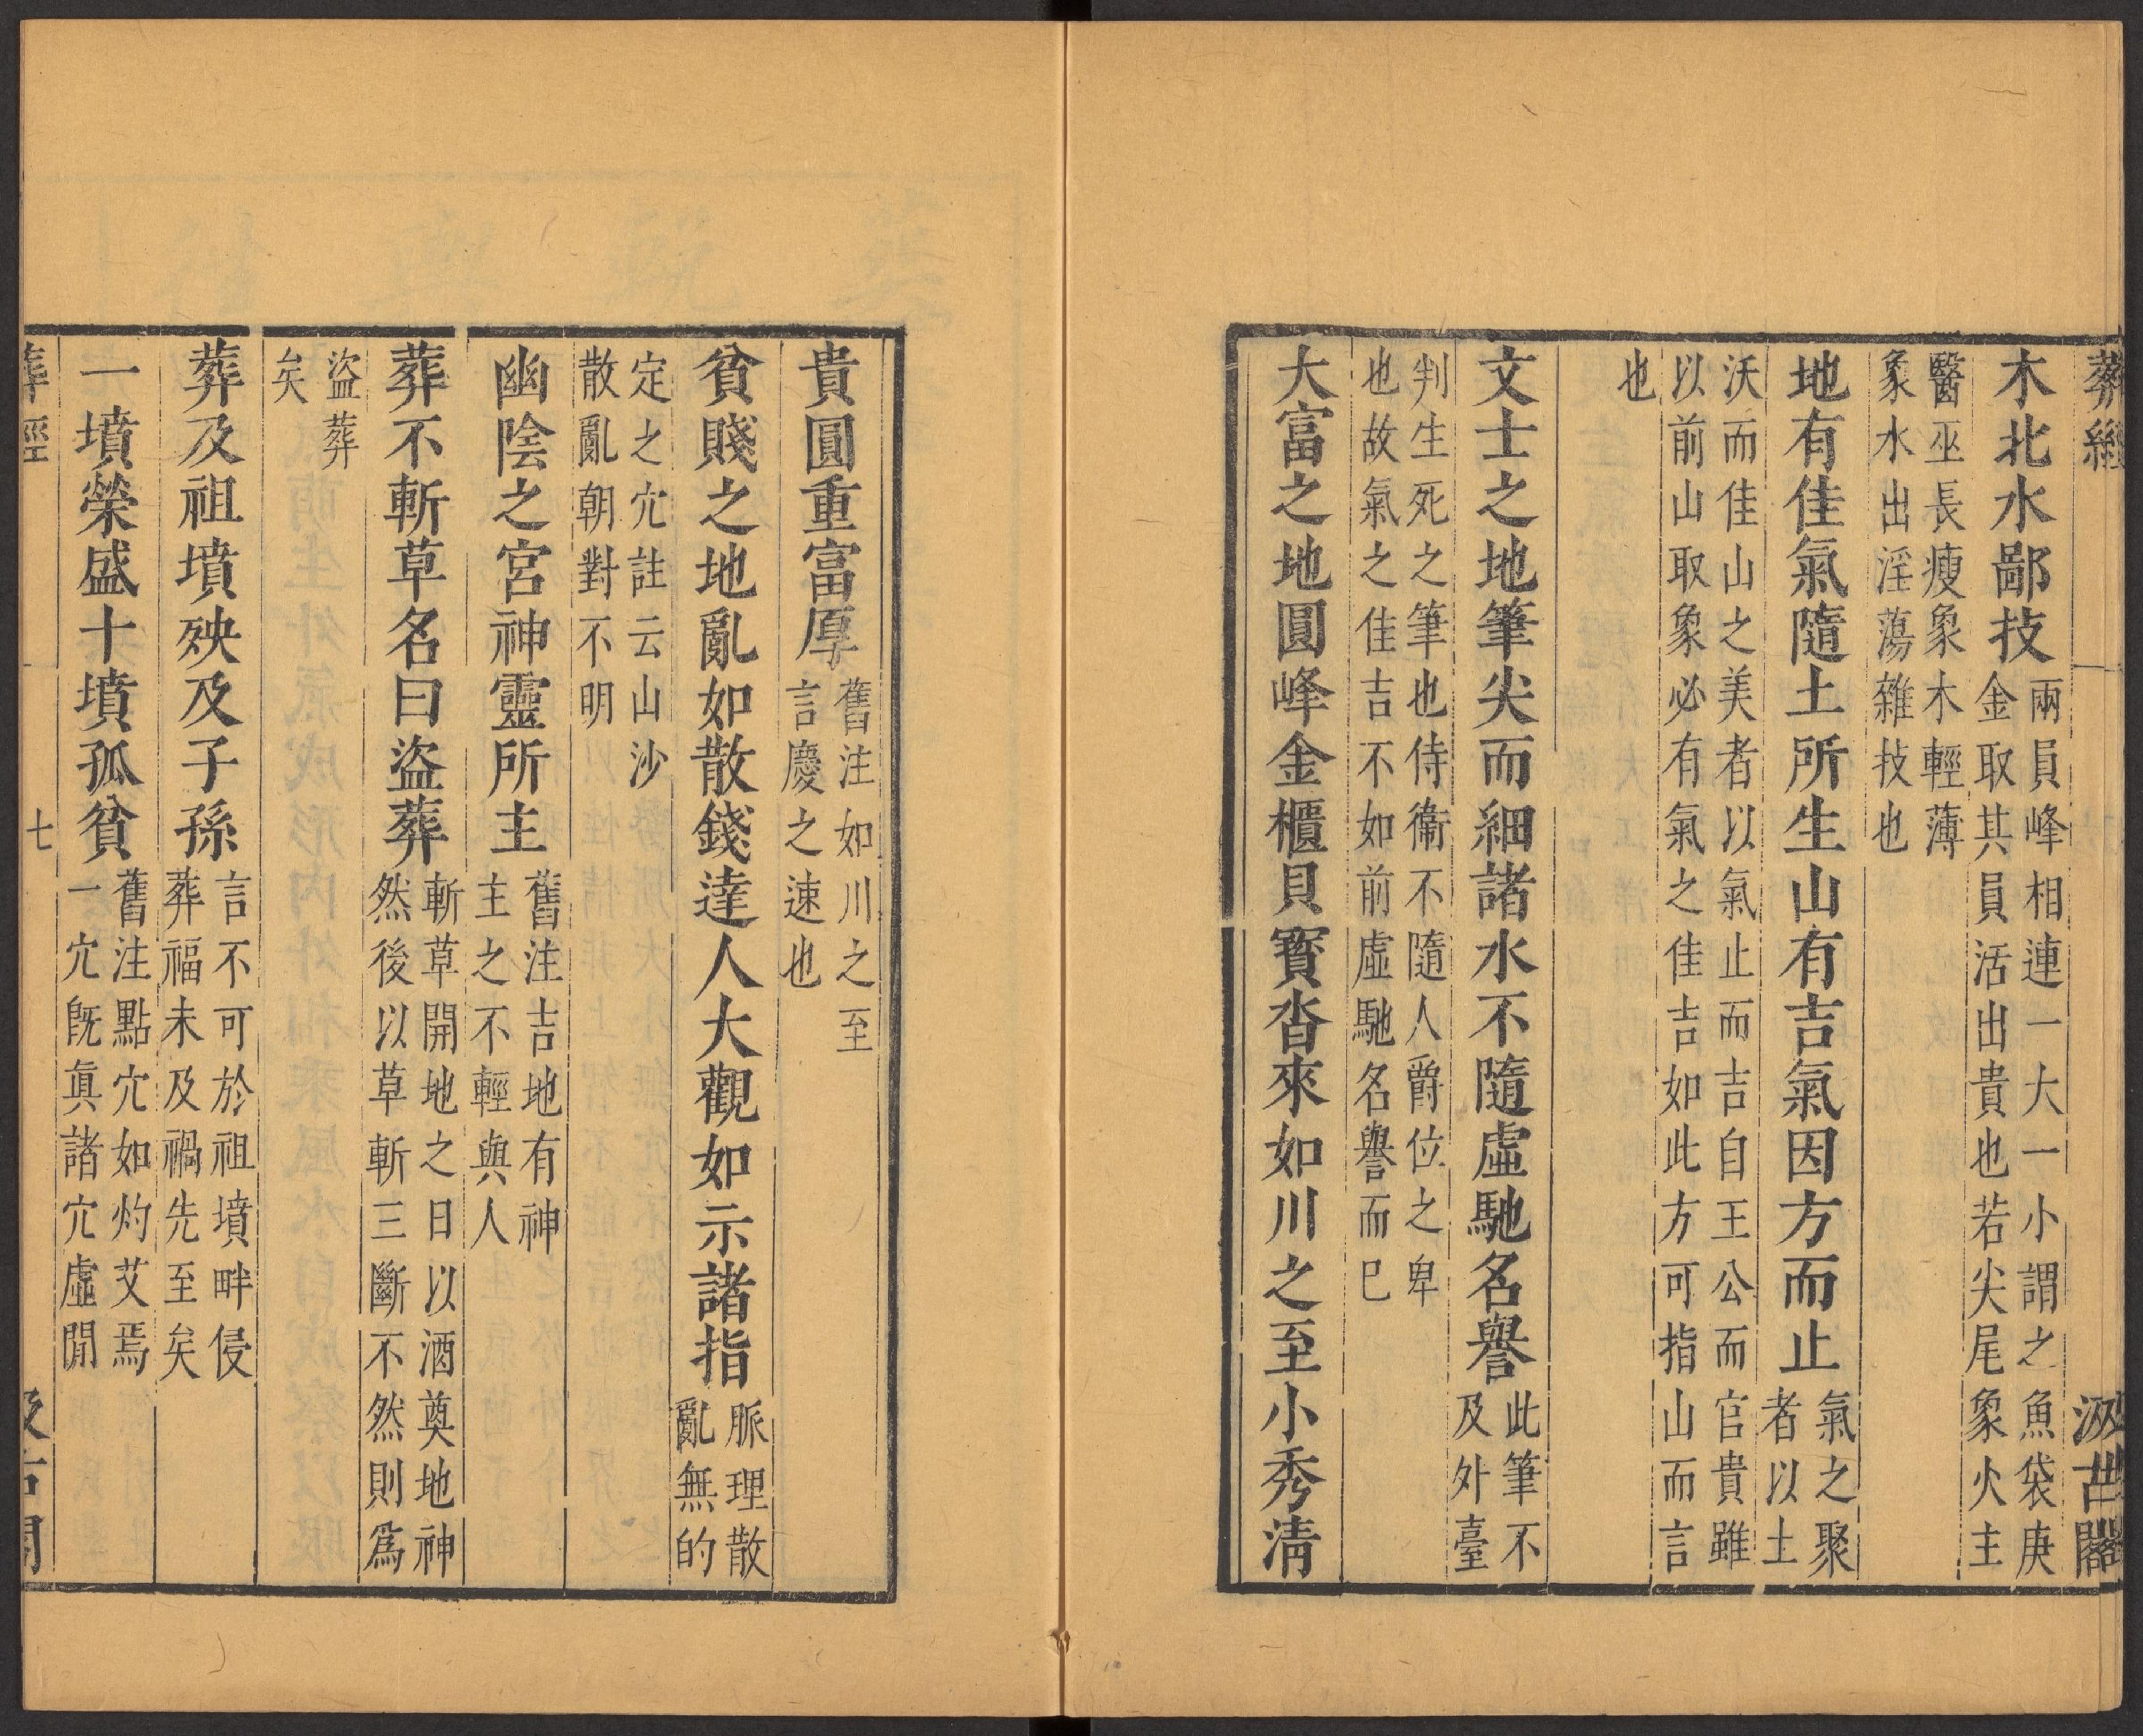 葬經
汲古閣
木北水鄙技
兩員峰相連一大一小謂之魚袋庚
金取其員活出貴也若尖尾象火主
醫巫長瘦象木輕薄
象水出淫蕩雜技也
地有佳氣隨土所生山有吉氣因方而止
氣之聚
者以土
沃而佳山之美者以氣止而吉自王公而官貴雖
以前山取象必有氣之佳吉如此方可指山而言
也
文士之地筆尖而細諸水不隨虛馳名譽
此筆不
及外臺
判生死之筆也侍衞不隨人爵位之卑
也故氣之佳吉不如前虛馳名譽而巳
大富之地圓峰金櫃貝寳沓來如川之至小秀淸
貴圓重富厚
舊注如川之至
言慶之速也
貧賤之地亂如散錢達人大觀如示諸指
脈理散
亂無的
定之穴註云山沙
散亂朝對不明
幽陰之宮神靈所主
舊注吉地有神
主之不輕與人
葬不斬草名曰盜葬
斬草開地之日以酒奠地神
然後以草斬三斷不然則爲
盜葬
矣
葬及祖墳殃及子孫
言不可於祖墳畔侵
葬福未及禍先至矣
一墳榮盛十墳孤貧
舊注點穴如灼艾焉
一穴旣眞諸穴虛閒
葬經
七
汲古閣